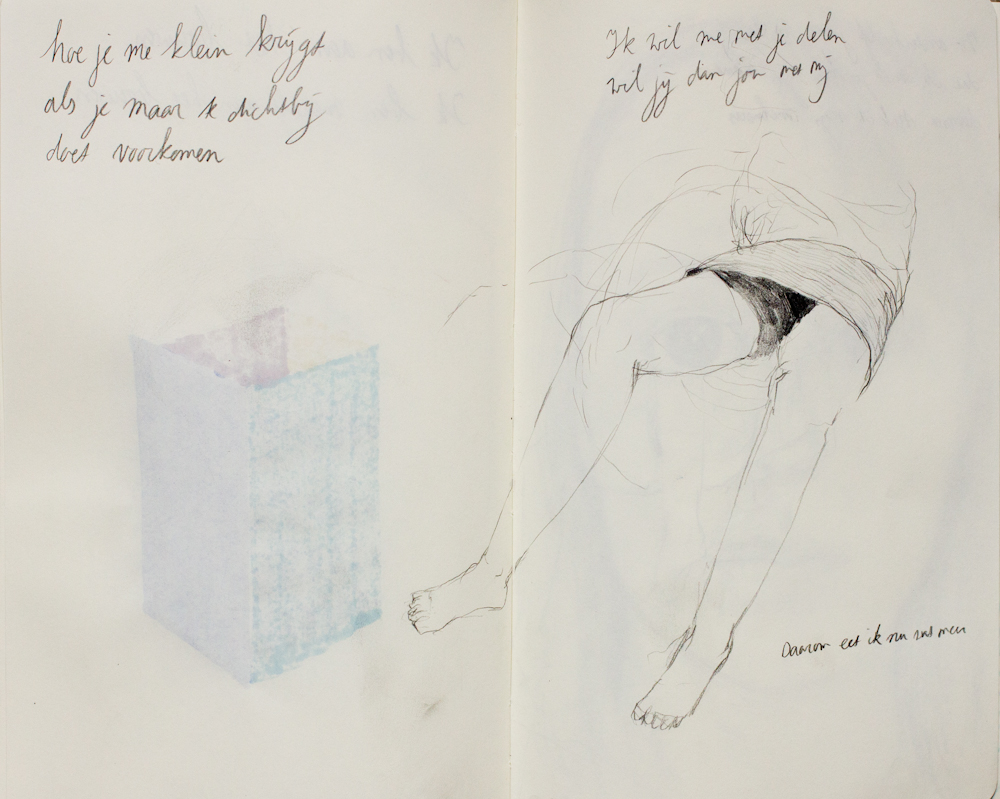 hoe je me klein krijgt
als je maar te dichtbij
doet voorkomen
Ik wil me met je delen
wil jij dan jou met mij
Daarom eet ik nu